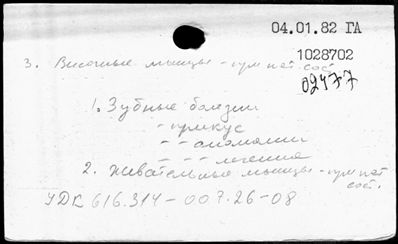 04.01.82 ГА
1028702
02477
3. Височные мышцы - при пат. сост.
1. Зубные болезни
- прикус
- - аномалии
- - - лечение
2. Жевательные мышцы - при пат. сост.
УДК 616.314-007.26-08